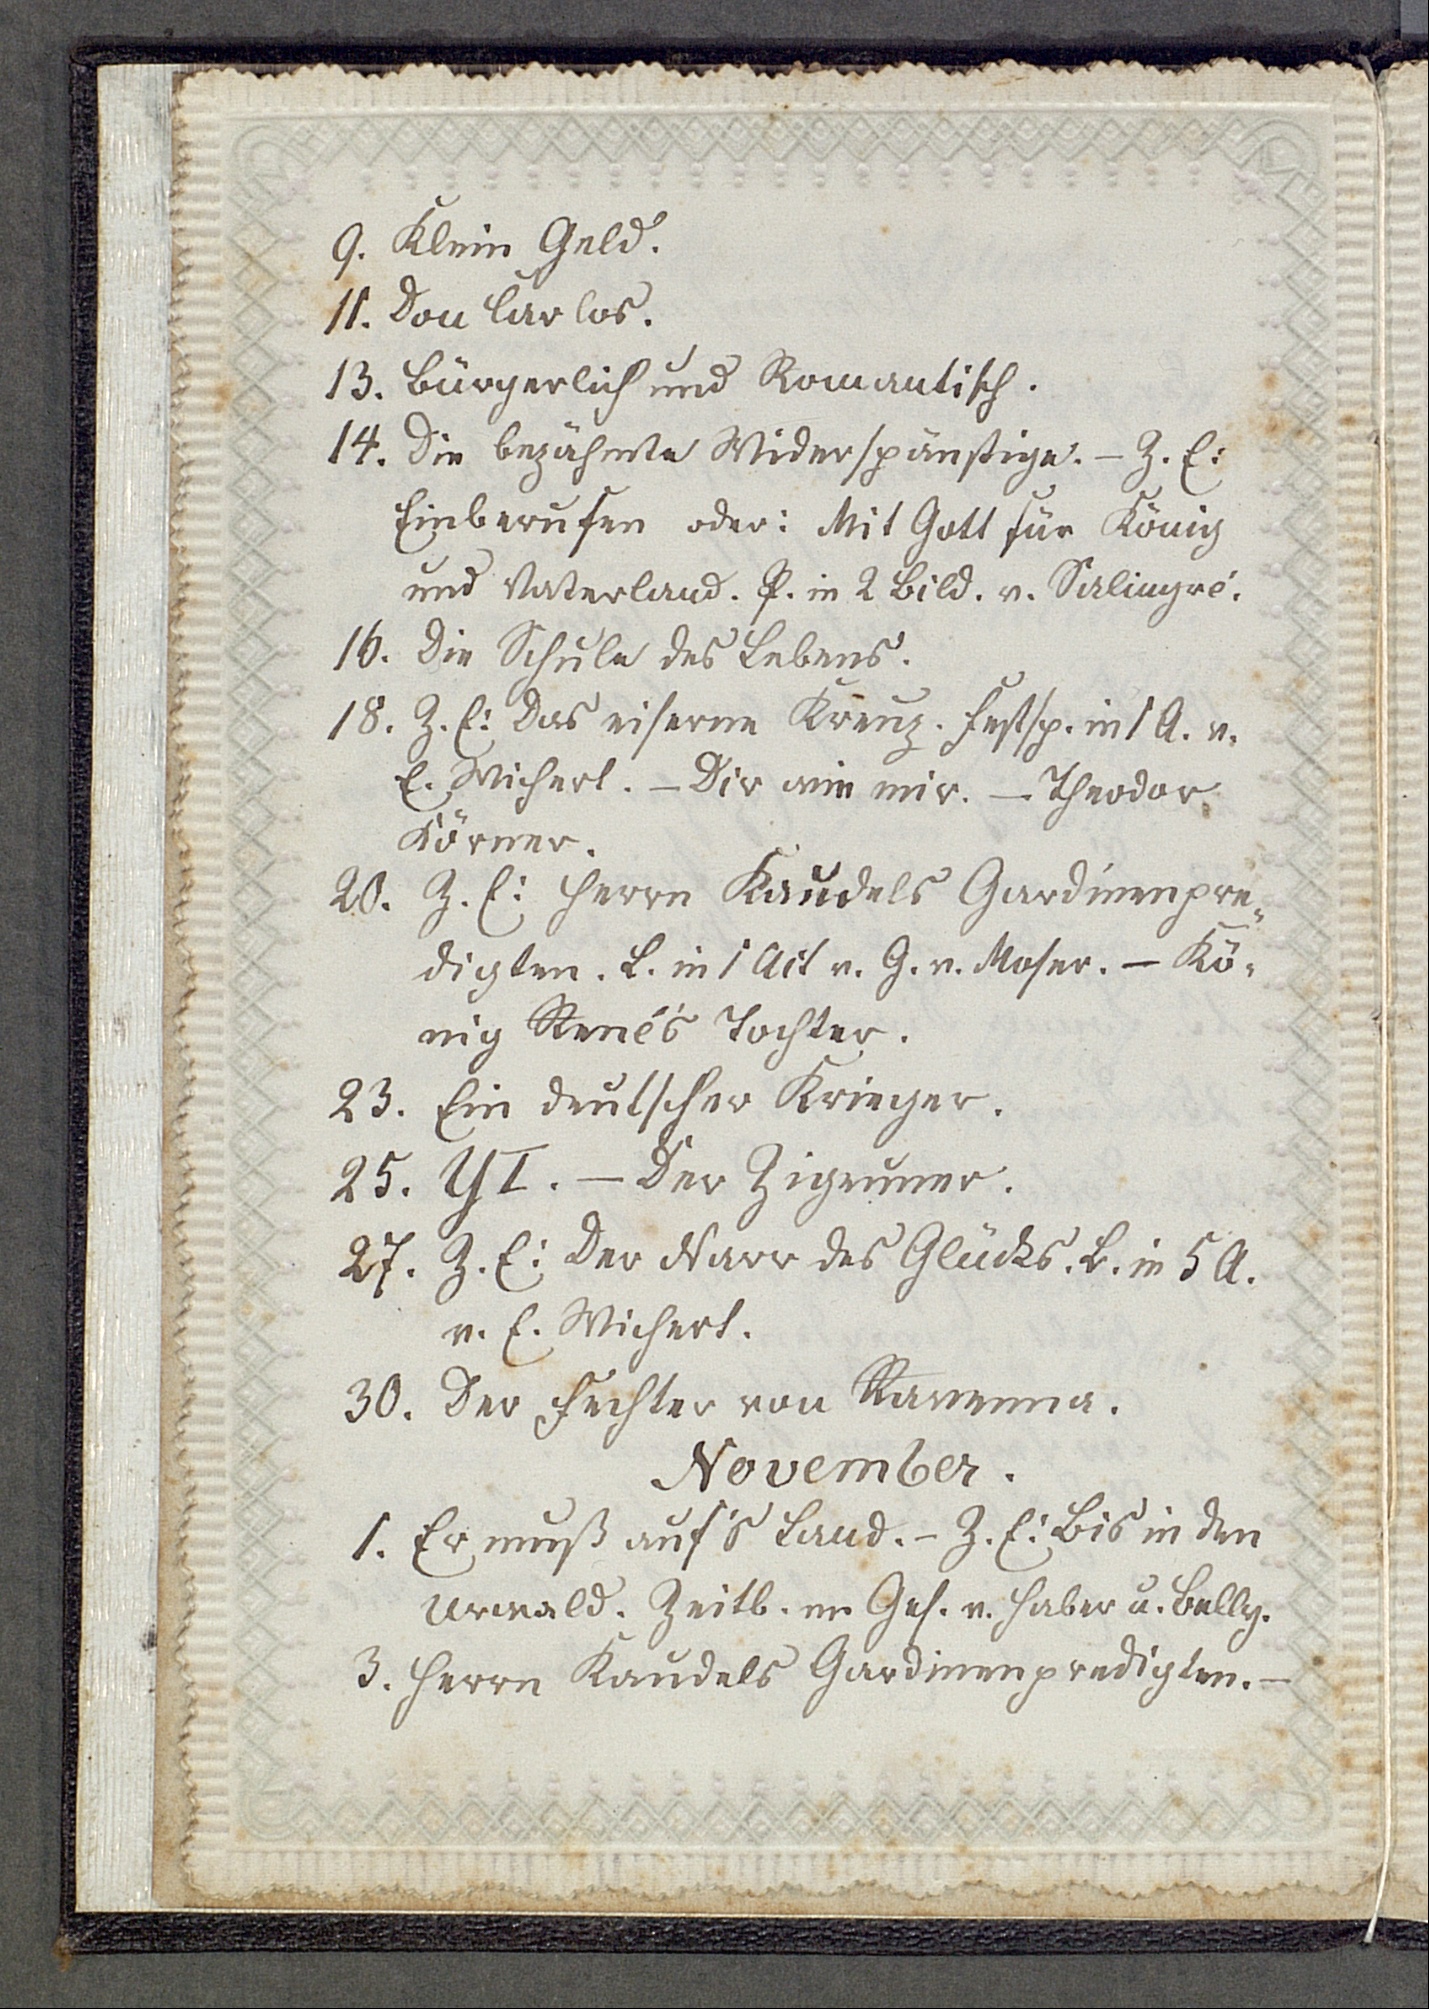 9. Klein Geld.
11. Don Carlos.
13. Bürgerlich und Romantisch.
14. Die bezähmte Widerspänstige. – Z. E:
Einberufen oder: Mit Gott für König
und Vaterland. P. in 2 Bild. v. Salingré.
16. Die Schule des Lebens.
18. Z. E: Das eiserne Kreuz. Festsp. in 1 A. v.
E. Wichert. – Dir wie mir. – Theodor
Körner.
20. Z. E: Herrn Kaudels Gardinenpre-
digten. L. in 1 Act v. G. v. Moser. – Kö-
nig René's Tochter.
23. Ein deutscher Krieger.
25. Y I. – Der Zigeuner.
27. Z. E: Der Narr des Glücks. L. in 5 A.
v. E. Wichert.
30. Der Fechter von Ravenna.
November.
1. Er muß auf's Land. – Z. E: Bis in den
Urwald. Zeitb. m. Ges. v. Haber u. Belly.
3. Herrn Kaudels Gardinenpredigten. –